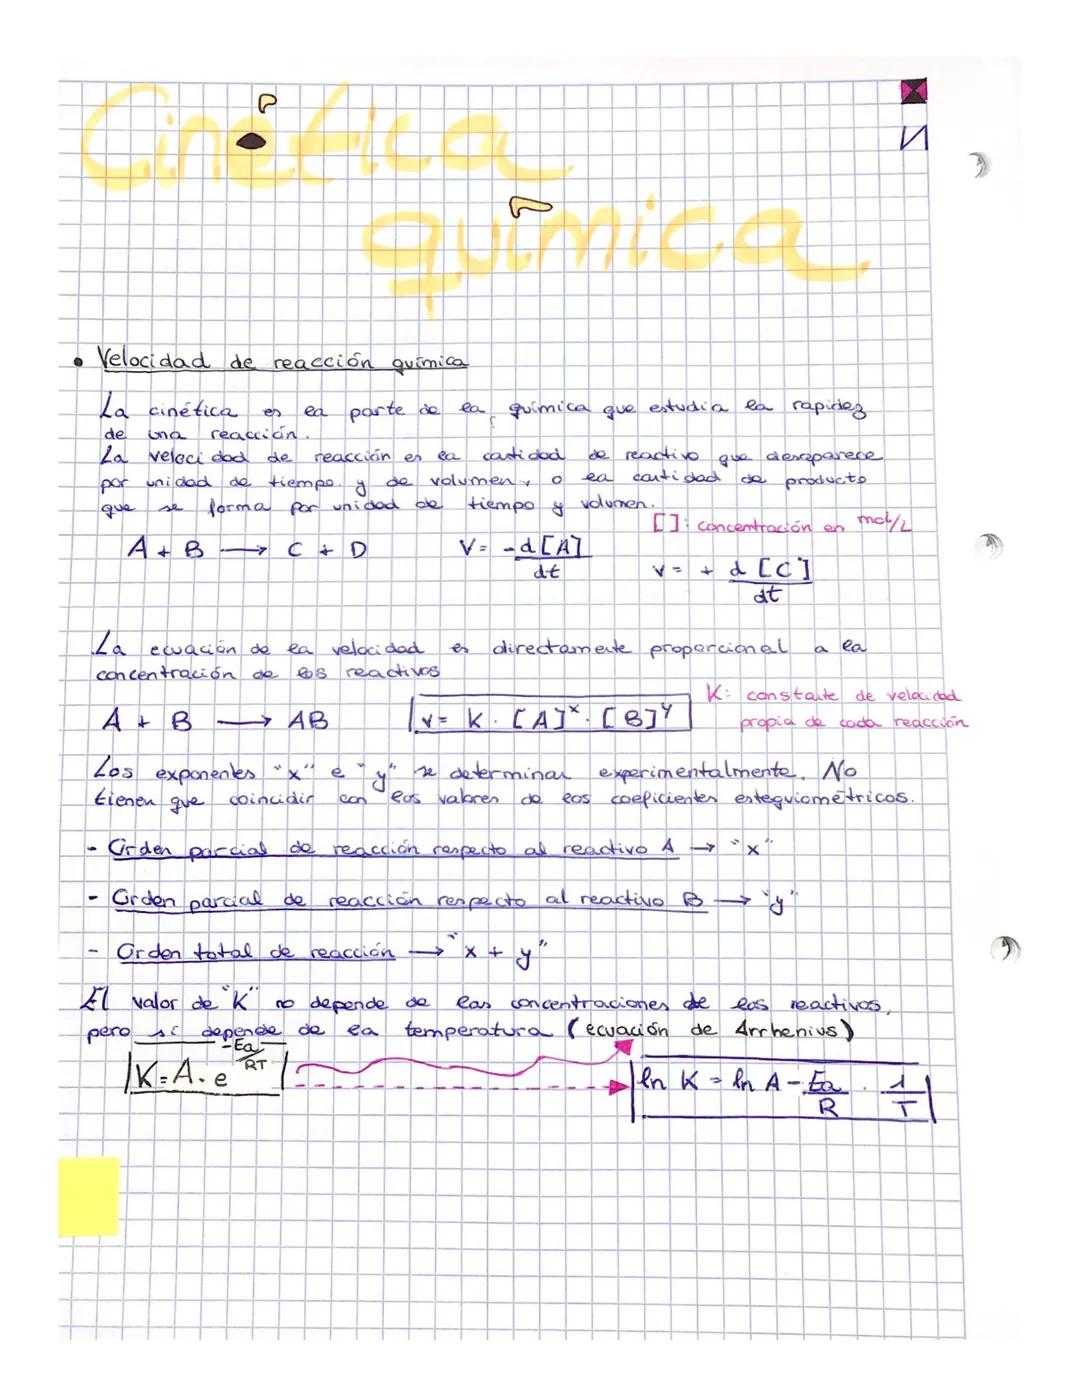 Cinética
química
• Velocidad de reacción química
La cinética es la parte de la química que estudia la rapidez
de una reacción.
La velocidad de reacción es la cantidad de reactivo que desaparece
por unidad de tiempo y de volumen, o la cantidad de producto
que se forma por unidad de tiempo y volumen.
[ ]: concentración en mol/L
A + B → C + D V = -d[A]/dt
v = + d[C]/dt
La ecuación de la velocidad es directamente proporcional a la
concentración de los reactivos
K: constante de velocidad
A + B → AB v = K · [A]ˣ · [B]ʸ
propia de cada reacción
Los exponentes "x" e "y" se determinan experimentalmente. No
tienen que coincidir con los valores de los coeficientes estequiométricos.
- Orden parcial de reacción respecto al reactivo A → "x"
- Orden parcial de reacción respecto al reactivo B → "y"
- Orden total de reacción → "x + y"
El valor de "K" no depende de las concentraciones de los reactivos,
pero sí depende de la temperatura (ecuación de Arrhenius)
K = A · e^(-Ea/RT)
ln K = ln A - Ea/R · 1/T